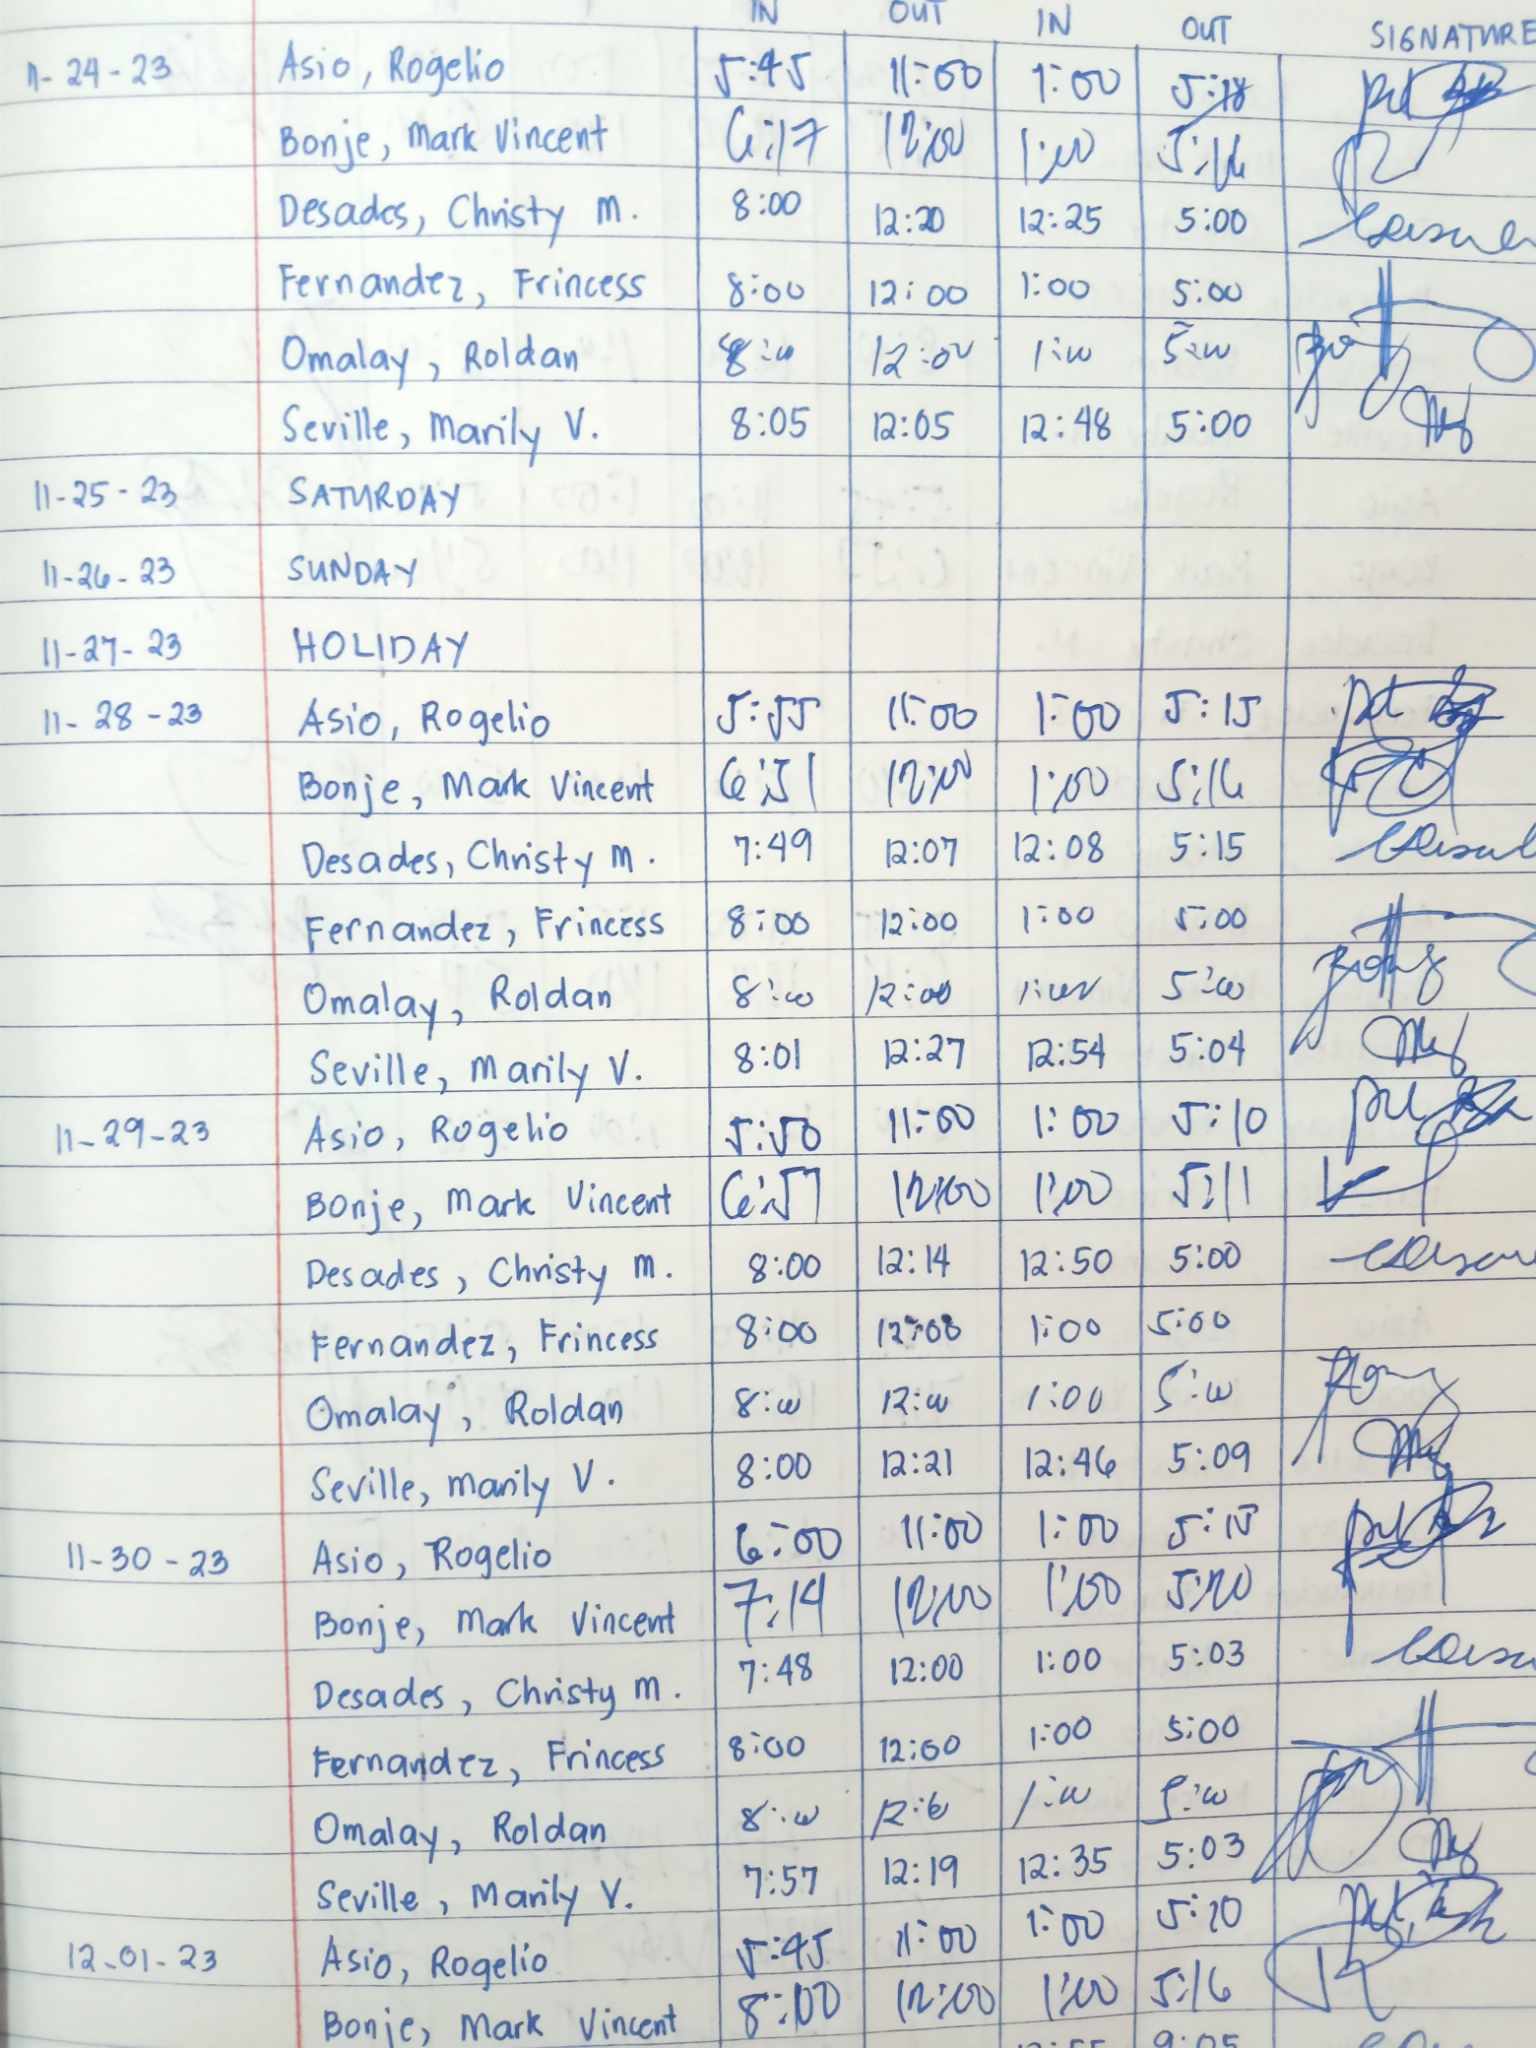 IN OUT IN OUT SIGNATURE
11-24-23 Asio, Rogelio 5:45 11:00 1:00 5:18
Bonje, Mark Vincent 6:17 12:00 1:00 5:16
Desades, Christy M. 8:00 12:20 12:25 5:00
Fernandez, Frincess 8:00 12:00 1:00 5:00
Omalay, Roldan 8:00 12:00 1:00 5:00
Seville, Marily V. 8:05 12:05 12:48 5:00
11-25-23 SATURDAY
11-26-23 SUNDAY
11-27-23 HOLIDAY
11-28-23 Asio, Rogelio 5:55 11:00 1:00 5:15
Bonje, Mark Vincent 6:51 12:00 1:00 5:16
Desades, Christy M. 7:49 12:07 12:08 5:15
Fernandez, Frincess 8:00 12:00 1:00 5:00
Omalay, Roldan 8:00 12:00 1:00 5:00
Seville, Marily V. 8:01 12:27 12:54 5:04
11-29-23 Asio, Rogelio 5:50 11:00 1:00 5:10
Bonje, Mark Vincent 6:57 12:00 1:00 5:11
Desades, Christy M. 8:00 12:14 12:50 5:00
Fernandez, Frincess 8:00 12:00 1:00 5:00
Omalay, Roldan 8:00 12:00 1:00 5:00
Seville, Marily V. 8:00 12:21 12:46 5:09
11-30-23 Asio, Rogelio 6:00 11:00 1:00 5:15
Bonje, Mark Vincent 7:14 12:00 1:00 5:20
Desades, Christy M. 7:48 12:00 1:00 5:03
Fernandez, Frincess 8:00 12:00 1:00 5:00
Omalay, Roldan 8:00 1:00 5:00
Seville, Marily V. 7:57 12:19 12:35 5:03
12-01-23 Asio, Rogelio 5:45 11:00 1:00 5:20
Bonje, Mark Vincent 8:00 12:00 1:00 5:16